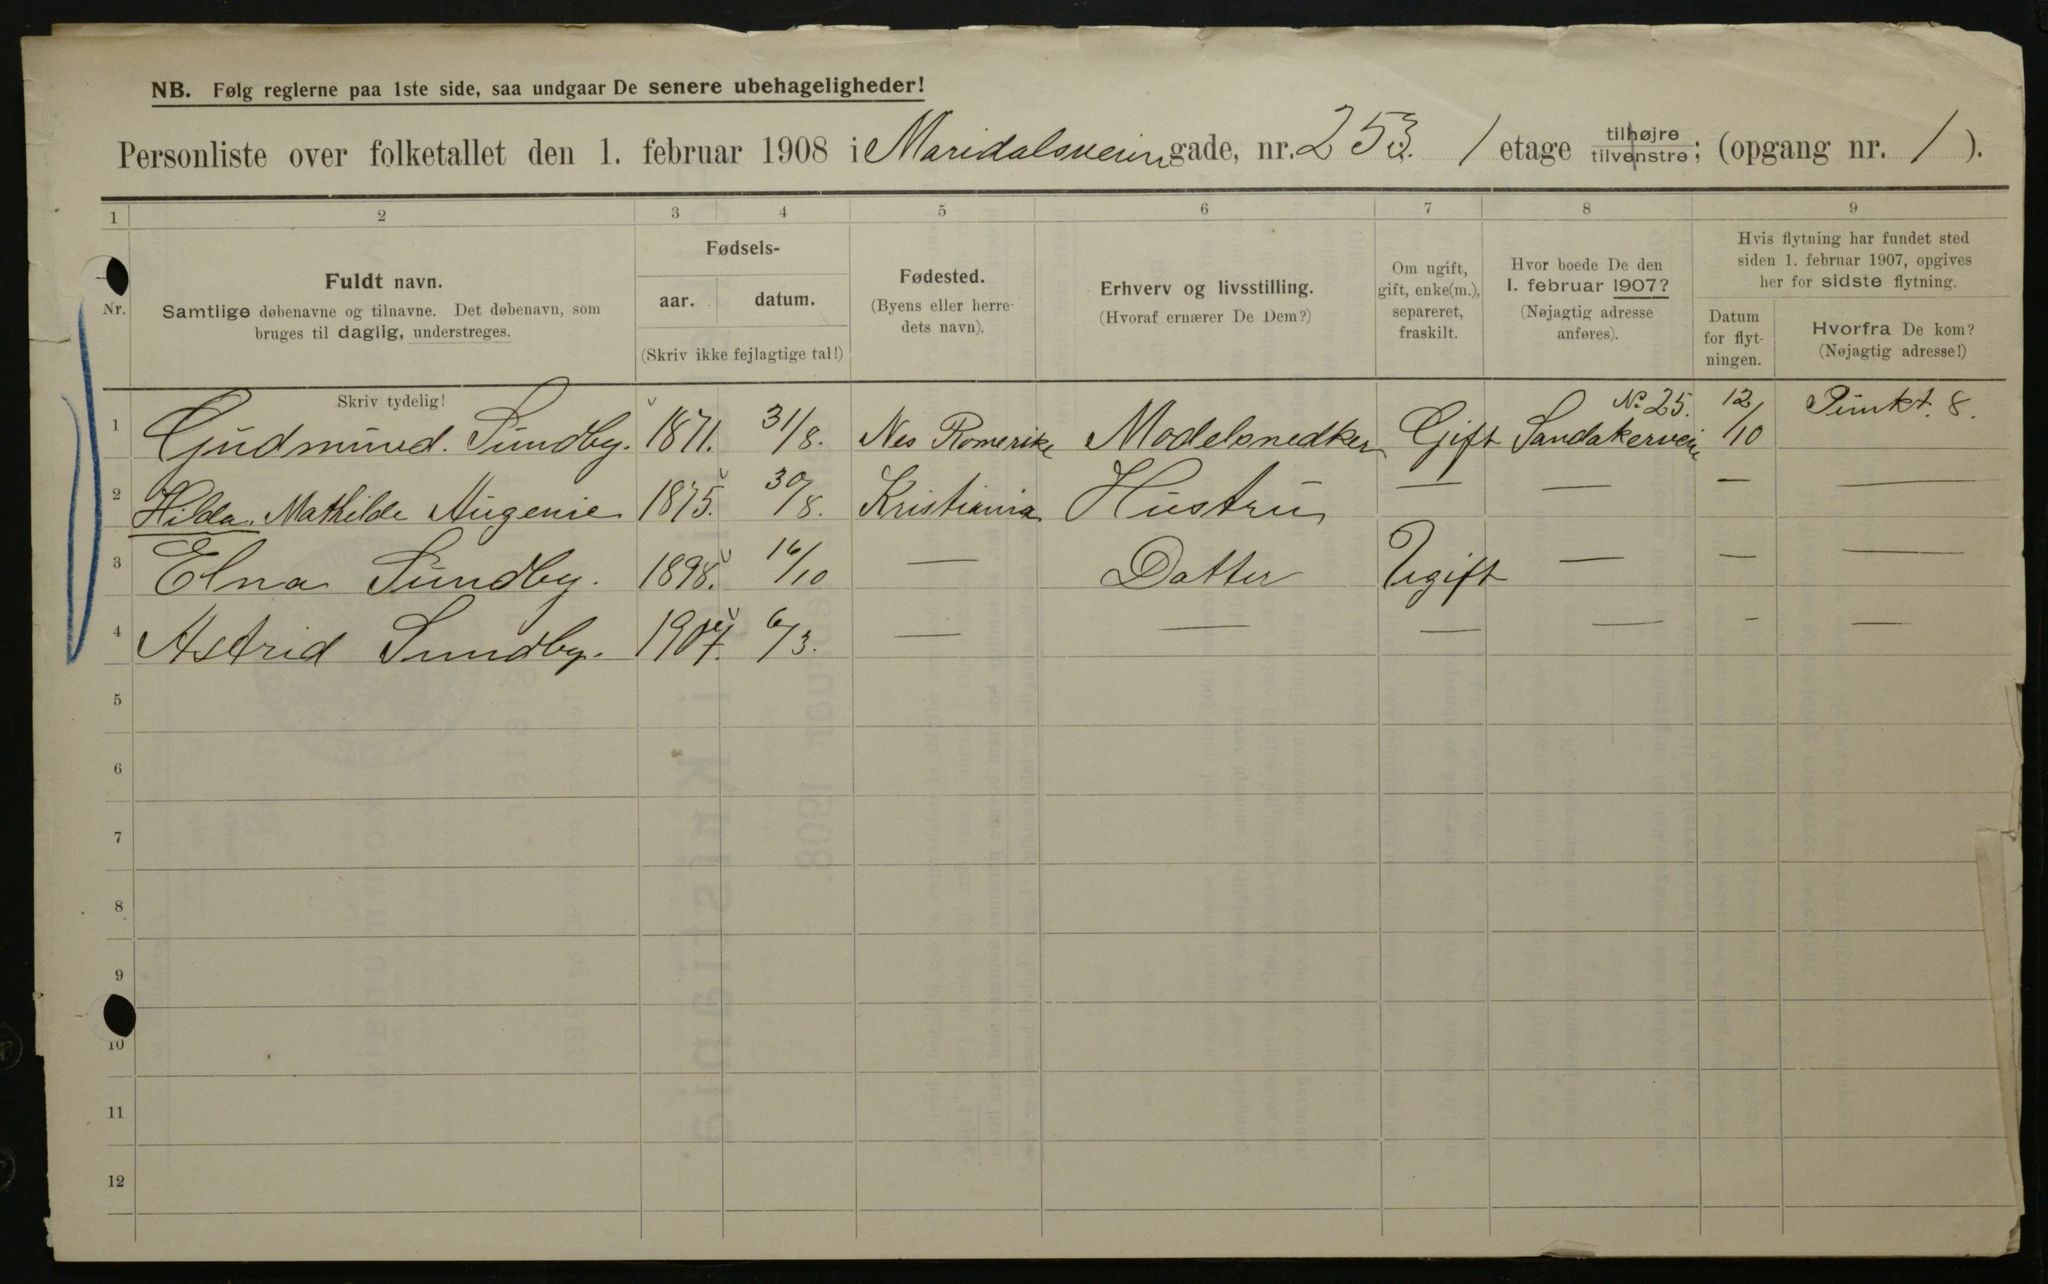 NB. Følg reglerne paa 1ste side, saa undgaar De senere ubehageligheder!
Personliste over folketallet den 1. februar 1908 i Maridalsveien gade, nr. 253. 1 etage tilhøjre / tilvenstre; (opgang nr. 1 ).
1 2 3 4 5 6 7 8 9
Nr.
Fuldt navn.
Samtlige døbenavne og tilnavne. Det døbenavn, som
bruges til daglig, understreges.
Fødsels-
aar. datum.
(Skriv ikke fejlagtige tal!)
Fødested.
(Byens eller herre-
dets navn).
Erhverv og livsstilling.
(Hvoraf ernærer De Dem?)
Om ugift,
gift, enke(m.),
separeret,
fraskilt.
Hvor boede De den
1. februar 1907?
(Nøjagtig adresse
anføres).
Hvis flytning har fundet sted
siden 1. februar 1907, opgives
her for sidste flytning.
Datum
for flyt-
ningen.
Hvorfra De kom?
(Nøjagtig adresse!)
Skriv tydelig!
1 Gudmund. Sundby. 1871. 31/8. Nes Romerike Modelsnedker Gift No 25. Sandakerveien 12/10 Punkt. 8.
2 Hilda. Mathilde Augenie 1875. 30/8. Kristiania Hustru — — — —
3 Elna Sundby. 1898. 16/10 — Datter Ugift — — —
4 Astrid Sundby. 1907. 6/3. — — — — - —
5
6
7
8
9
10
11
12